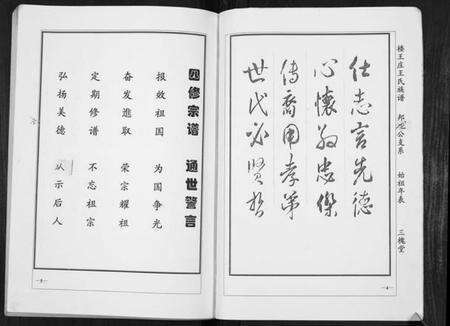 楼王庄王氏族谱 邦 公支系 始祖年表 三槐堂
仕志言先德
心懷 忠傑
傳裔用孝弟
世代必賢哲
四修宗谱 通世警言
报效祖国 为国争光
奋发進取 荣宗耀祖
定期修谱 不忘祖宗
弘扬美德 以示后人